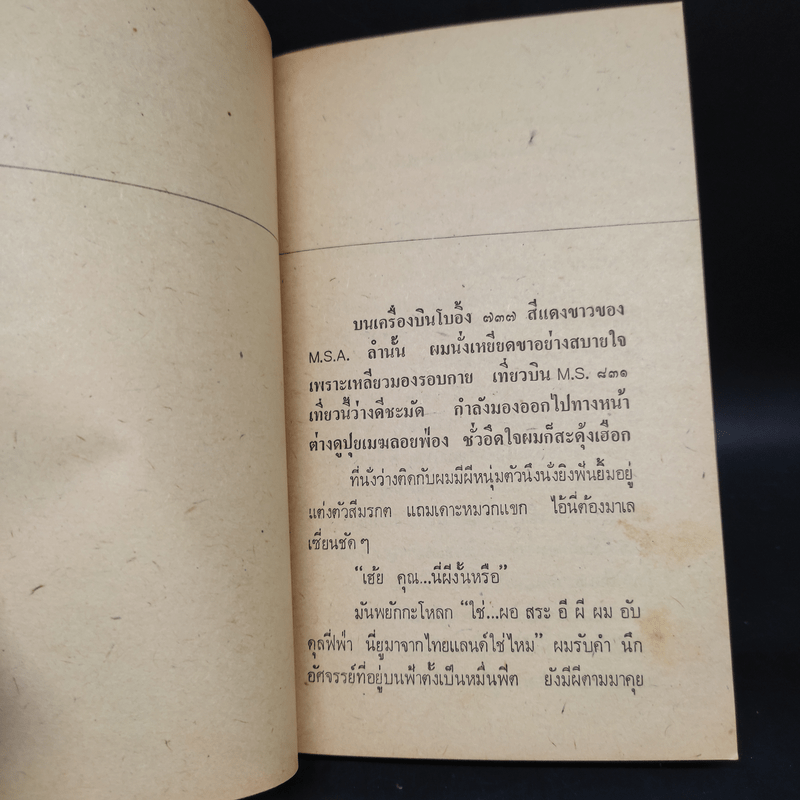 บนเครื่องบินโบอิ้ง ๗๓๗ สีแดงขาวของ
M.S.A. ลำนั้น ผมนั่งเหยียดขาอย่างสบายใจ
เพราะเหลียวมองรอบกาย เที่ยวบิน M.S. ๘๓๑
เที่ยวนี้ว่างดีชะมัด กำลังมองออกไปทางหน้า
ต่างดูปุยเมฆลอยฟ่อง ชั่วอึดใจผมก็สะดุ้งเฮือก
ที่นั่งว่างติดกับผมมีผีหนุ่มตัวนึงนั่งยิงฟันยิ้มอยู่
แต่งตัวสีมรกต แถมเคาะหมวกแขก ไอ้นี่ต้องมาเล
เซี่ยนชัด ๆ
“เฮ้ย คุณ...นี่ผีงั้นหรือ”
มันพยักกะโหลก “ใช่...ผอ สระ อี ผี ผม อับ
ดุลฟี่ฟ่า นี่ยูมาจากไทยแลนด์ใช่ไหม” ผมรับคำ นึก
อัศจรรย์ที่อยู่บนฟ้าตั้งเป็นหมื่นฟีต ยังมีผีตามมาคุย